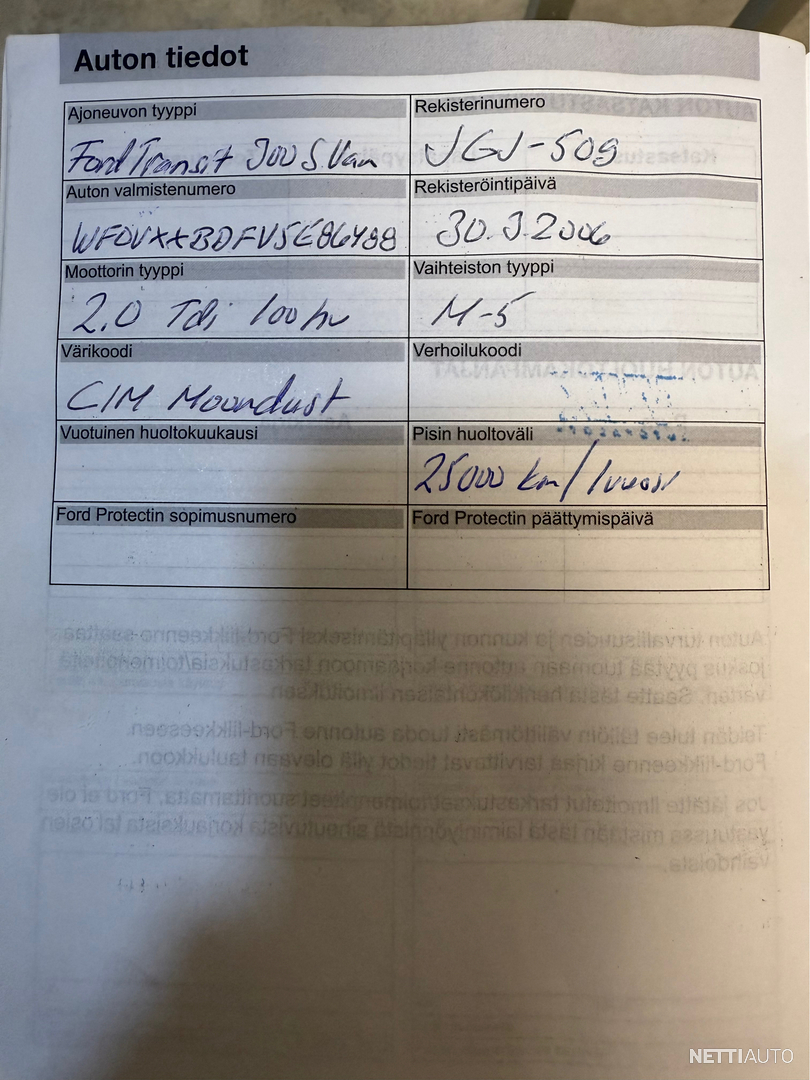 Auton tiedot
Ajoneuvon tyyppi
Rekisterinumero
Ford Transit 300 S Van
JGJ-509
Auton valmistenumero
Rekisteröintipäivä
WF0VXXBDFV5E86488
30.3.2006
Moottorin tyyppi
Vaihteiston tyyppi
2.0 Tdi 100hv
M-5
Värikoodi
Verhoilukoodi
CIM Moondust
Vuotuinen huoltokuukausi
Pisin huoltoväli
25000 km/1vuosi
Ford Protectin sopimusnumero
Ford Protectin päättymispäivä
NETTIAUTO